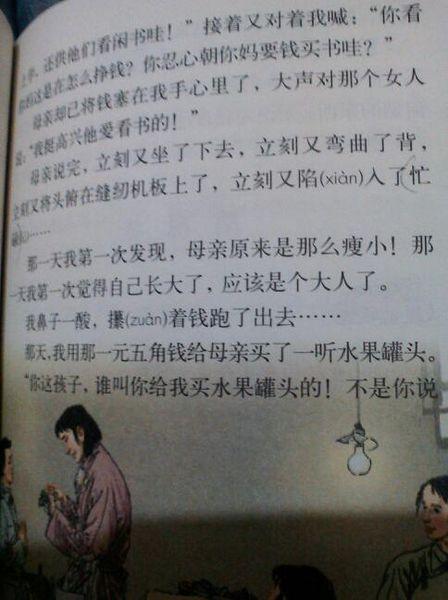 上学，还供他们看闲书哇！”接着又对着我喊：“你看
你妈这是在怎么挣钱？你忍心朝你妈要钱买书哇？”
母亲却已将钱塞在我手心里了，大声对那个女人
说：“我挺高兴他爱看书的！”
母亲说完，立刻又坐了下去，立刻又弯曲了背，
立刻又将头俯在缝纫机板上了，立刻又陷(xiàn)入了忙
碌……
那一天我第一次发现，母亲原来是那么瘦小！那
一天我第一次觉得自己长大了，应该是个大人了。
我鼻子一酸，攥(zuàn)着钱跑了出去……
那天，我用那一元五角钱给母亲买了一听水果罐头。
“你这孩子，谁叫你给我买水果罐头的！不是你说